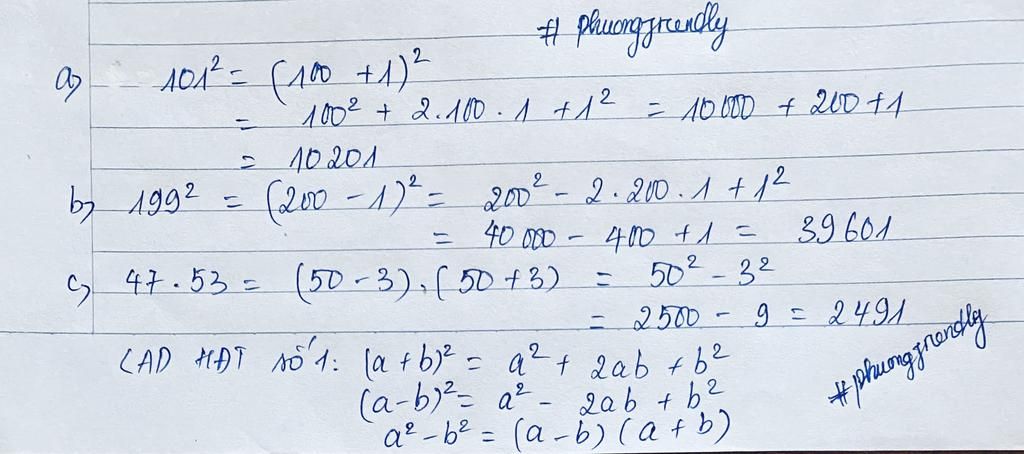 # phuongfrendly
a) 101² = (100 + 1)²
= 100² + 2.100.1 + 1² = 10000 + 200 + 1
= 10201
b) 199² = (200 - 1)² = 200² - 2.200.1 + 1²
= 40000 - 400 + 1 = 39601
c) 47.53 = (50 - 3).(50 + 3) = 50² - 3²
= 2500 - 9 = 2491
(AD HĐT số 1: (a + b)² = a² + 2ab + b²
(a - b)² = a² - 2ab + b²
a² - b² = (a - b)(a + b)
#phuongfrendly